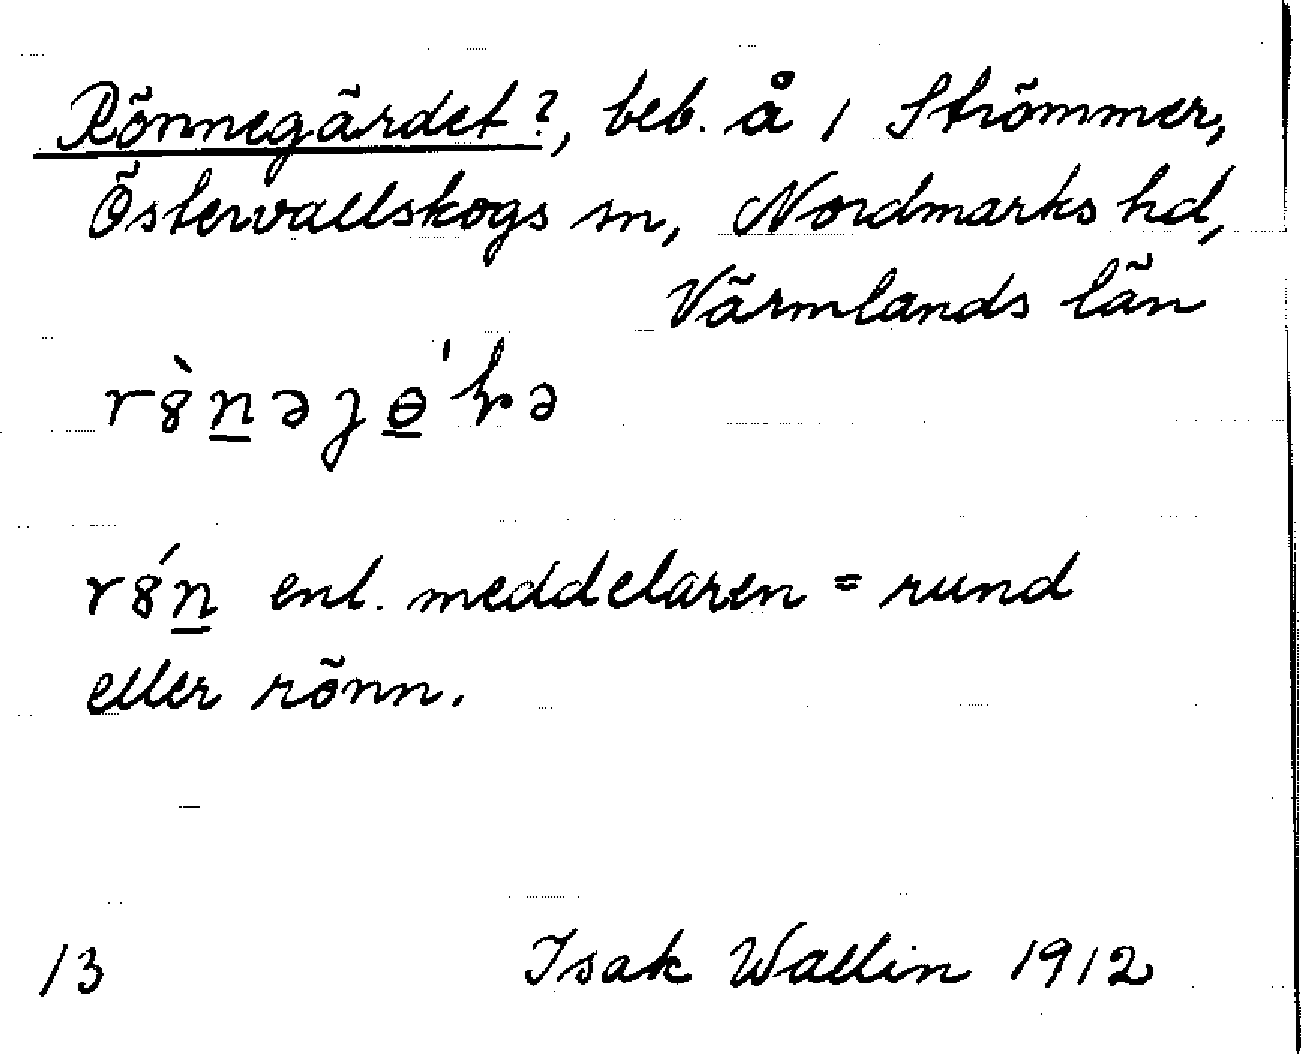 Rönnegärdet?, beb. å 1 Strömmer,
Östervallskogs sn, Nordmarks hd,
Värmlands län
rón enl. meddelaren = rund
eller rönn.
13 Isak Wallin 1912